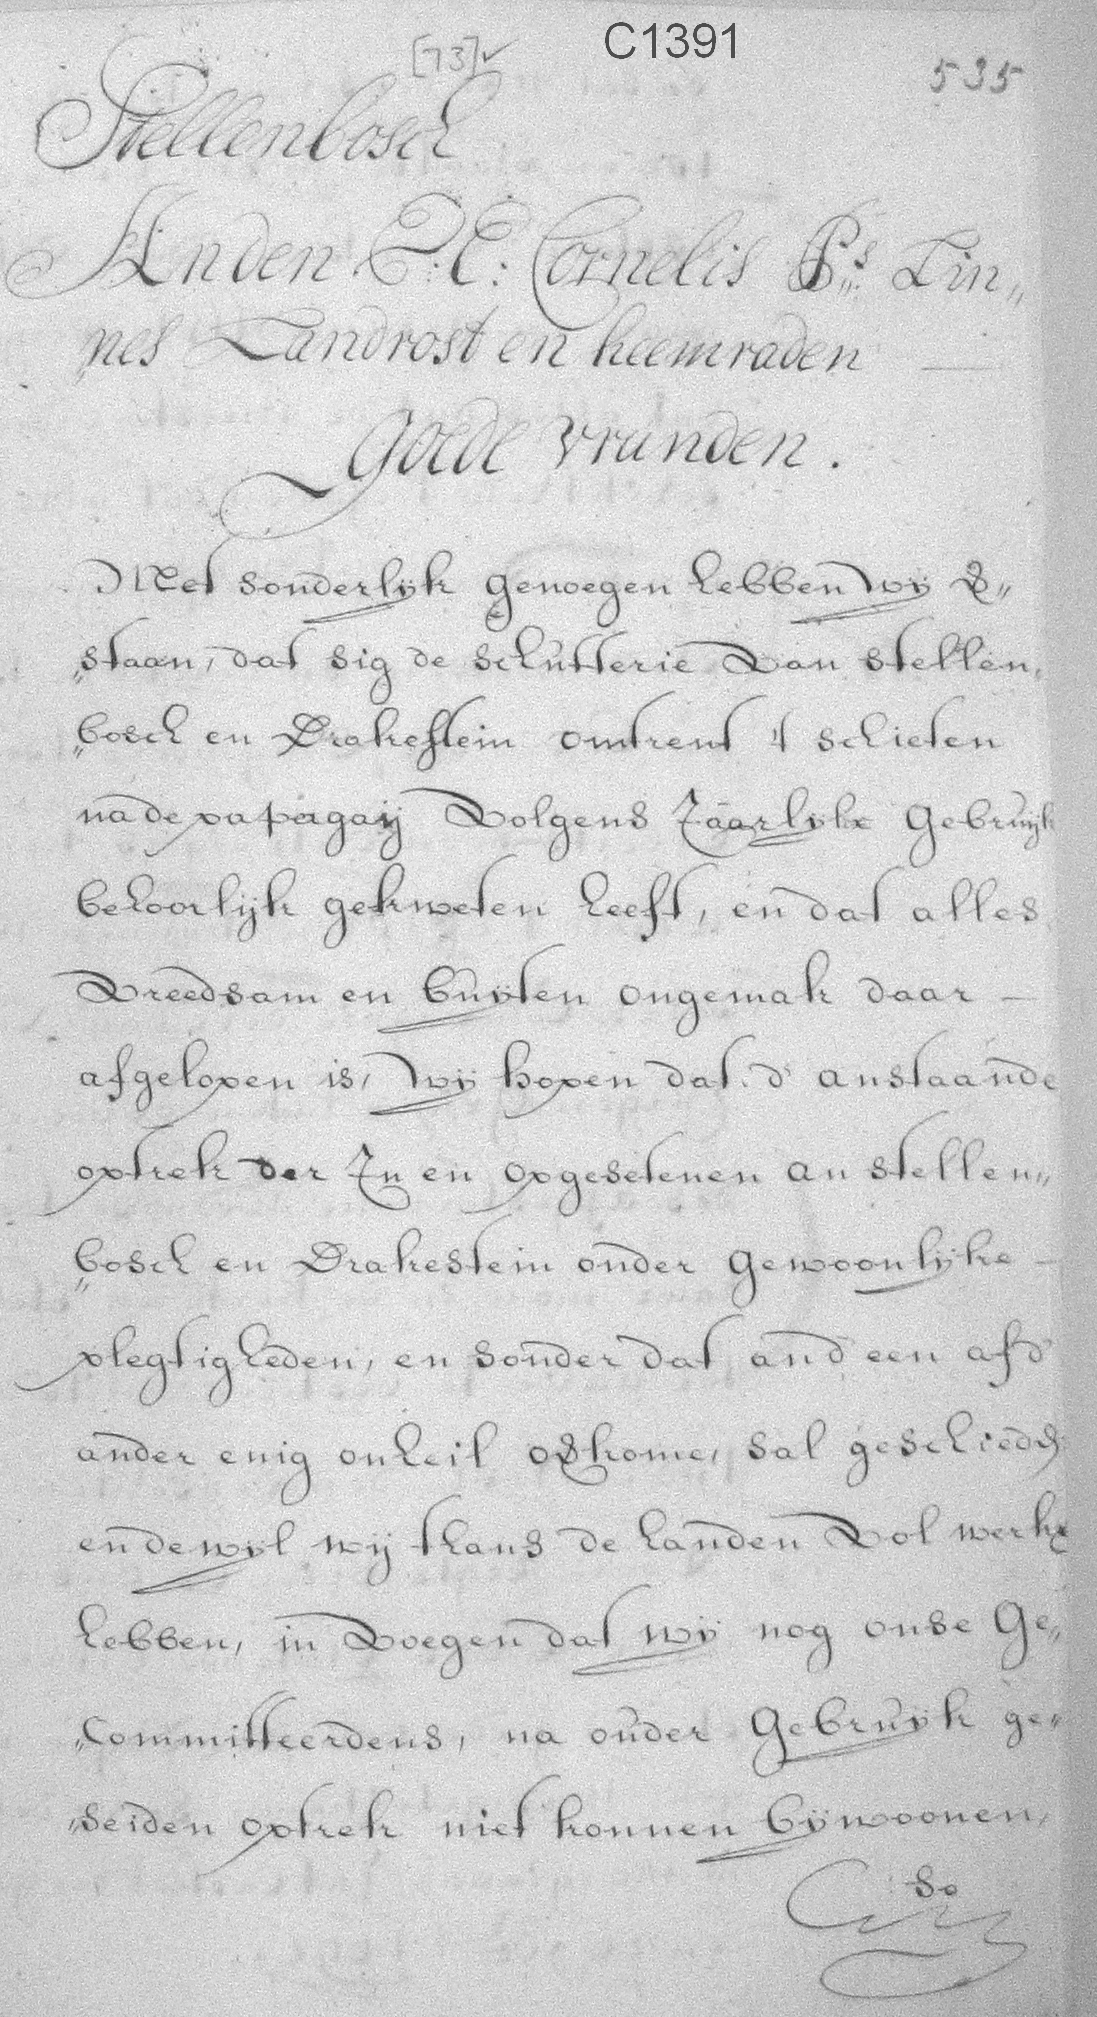 C1391
[73]✓
535
Stellenbosch
Anden E: E: Cornelis Ps: Lin„
nes Landrost en heemraden
Goede vrunden.
Met sonderlijk genoegen hebben wij v„
„staan, dat sig de schutterie van stellen„
„bosch en Drakestein omtrent 't schieten
na de papegaij volgens Jaarlijkx gebruijk
behoorlijk gekweten heeft, en dat alles
vreedsam en buijten ongemak daar —
afgelopen is, wij hopen dat d' anstaande
optrek der In en opgesetenen an stellen„
„bosch en Drakestein onder gewoonlijke —
plegtigheden, en sonder dat and een af d'
ander enig onheil overkome, sal geschieden
en dewijl wij thans de handen vol werkx
hebben, in voegen dat wij nog onse Ge„
„committeerdens, na ouder gebruijk ge„
„seiden optrek niet konnen bijwoonen,
so